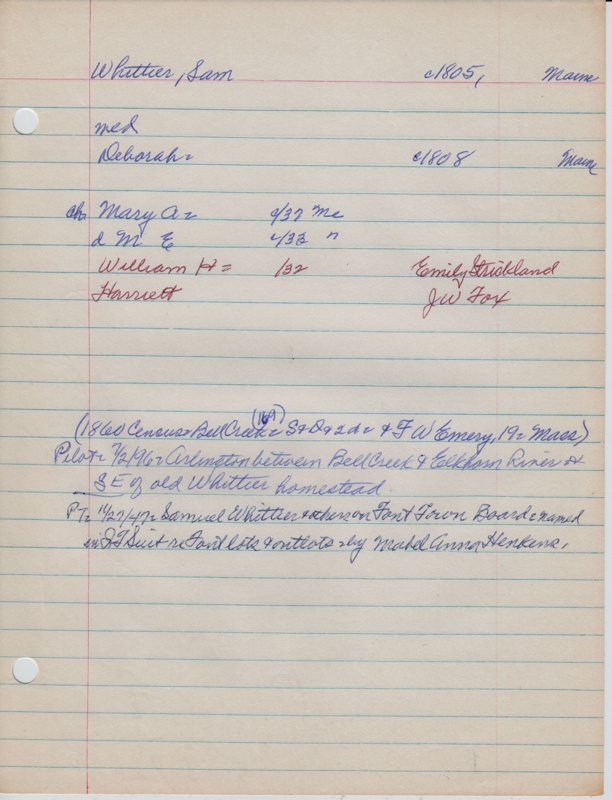 Whittier, Sam c1805, Maine
med
Deborah= c1808 Maine
ch. Mary A= c/37 Me
d M E c/33 "
William H= /32 Emily Strickland
Harriett J W Fox
(169)
(1860 Census= Bell Creek= S & D & 2 d= & F W Emery, 19= Mass)
Pilot= 7/2/96= Arlington between Bell Creek & Elkhorn River &
SE of old Whittier homestead.
PT= 11/27/47= Samuel Whittier & others on Font Town Board= named
in Suit re Font lots & outlots =by Mabel Anna Henkins,